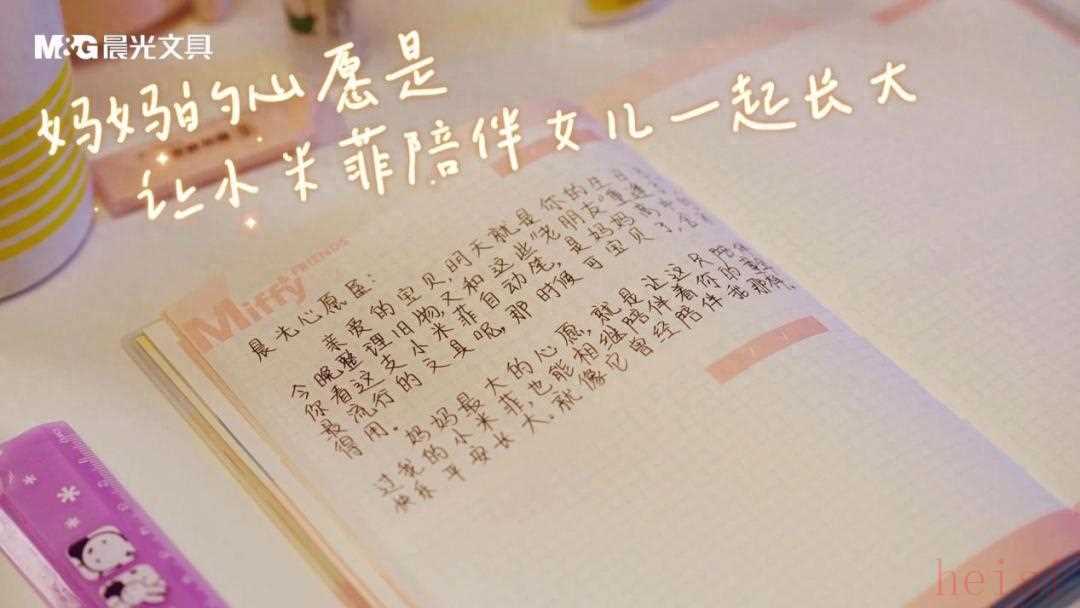 M&G晨光文具
妈妈的心愿是
让小米菲陪伴女儿一起长大
Miffy FRIENDS
晨光心愿臣:
亲爱的宝贝,明天就是你的生日
今晚整理旧物,又和这些“老朋友”重逢
你看这支小米菲自动笔,是妈妈
最流行的文具呢,那时候可宝贝了,舍
得用。
妈妈最大的心愿,就是让这只陪
过我的小米菲,也能相继陪伴着你的
快乐平安长大。就像它曾经陪伴我那样。
hei